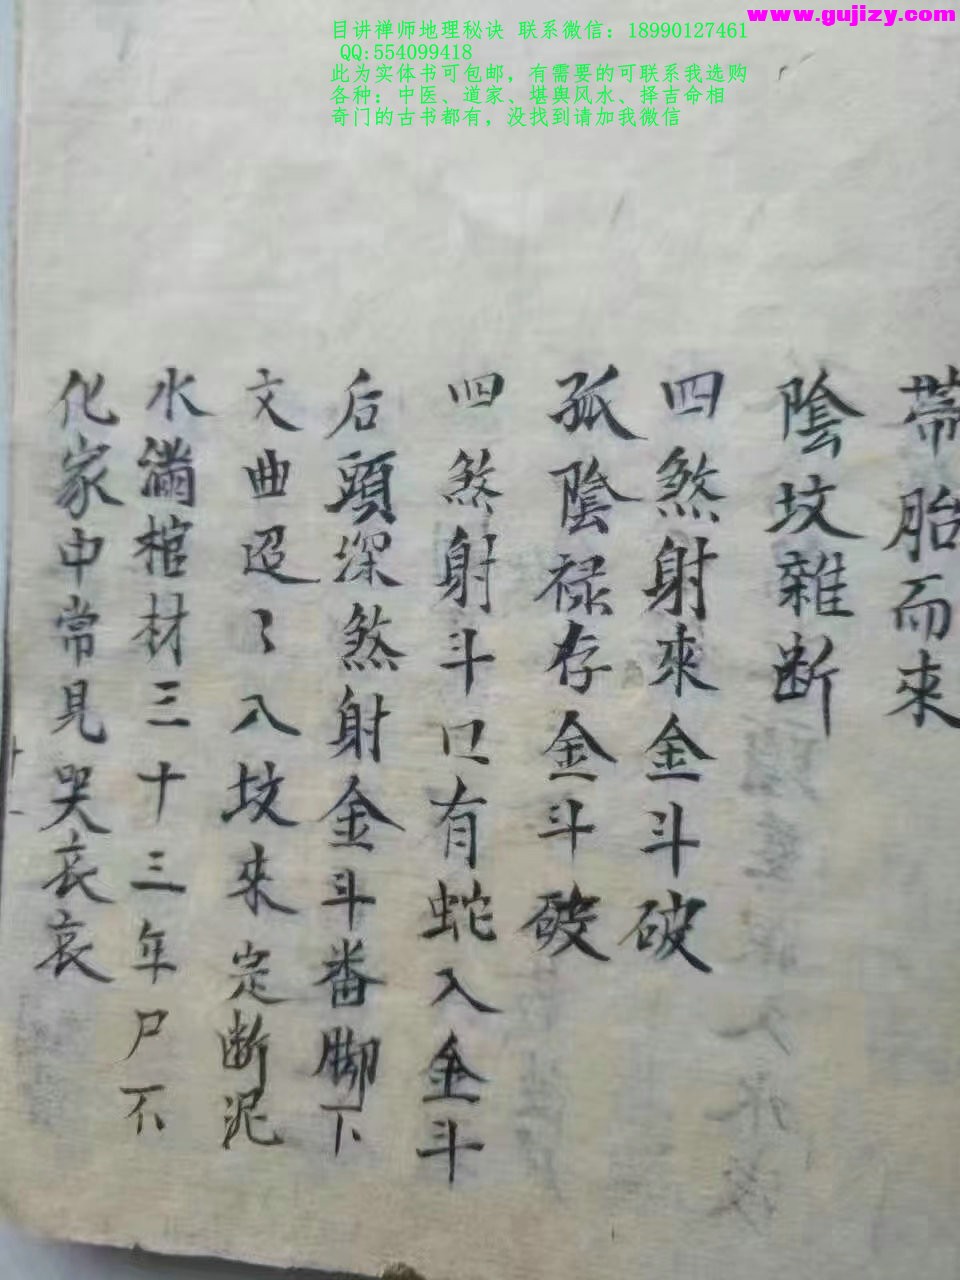 www.gujizy.com
目讲禅师地理秘诀 联系微信：18990127461
QQ:554099418
此为实体书可包邮，有需要的可联系我选购
各种：中医、道家、堪舆风水、择吉命相
奇门的古书都有，没找到请加我微信
帶胎而來
陰坟雜断
四煞射來金斗破
孤陰禄存金斗破
四煞射斗口有蛇入金斗
后頭深煞射金斗番脚下
文曲迢〻入坟來定断泥
水满棺材三十三年尸不
化家中常見哭哀哀